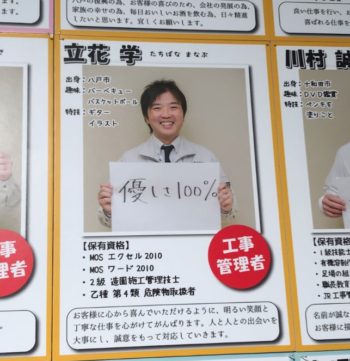 八戸の復興の為、お客様の喜びのため、会社の発展の為、
家族の幸せの為、毎日おいしいお酒を飲む為、日々精進
したいと思います。宜しくお願いします。
良い仕事を行い、
喜ばれる仕事を
立花 学 たちばな まなぶ
出身:八戸市
趣味:バーベキュー
バスケットボール
特技:ギター
イラスト
優しさ100%
【保有資格】
・MOS エクセル 2010
・MOS ワード 2010
・2級 造園施工管理技士
・乙種 第4類 危険物取扱者
工事
管理者
お客様に心から喜んでいただけるように、明るい笑顔と
丁寧な仕事を心がけてがんばります。人と人との出会いを
大事にし、誠意をもって対応していきます。
川村 誠
出身:十和田市
趣味:DVD鑑賞
特技:ペンキを
塗りこと
【保有資格】
・1級技能士
・有機溶剤作
・足場の組
・職長教育
・JR工事
名前が誠な
お客様に接
工事
管理者